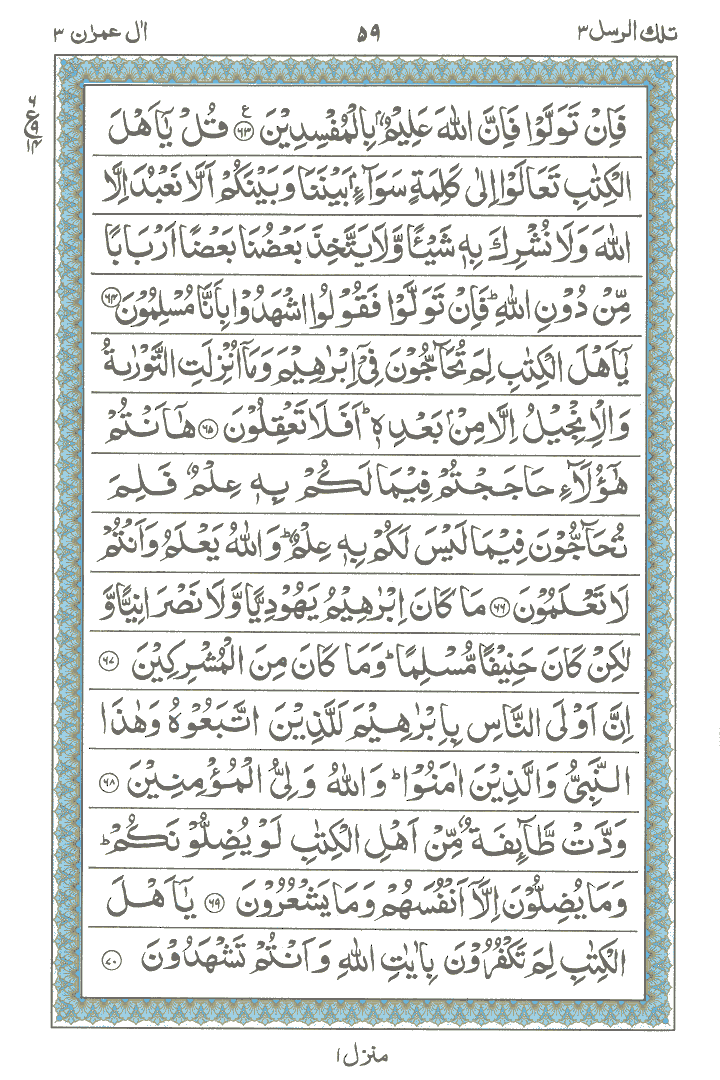 تلك الرسل ٣ ٥٩ اٰل عمرٰن ٣
فَاِنْ تَوَلَّوْا فَاِنَّ اللّٰهَ عَلِيْمٌۢ بِالْمُفْسِدِيْنَ ﴿٦٣﴾ ع قُلْ يٰۤاَهْلَ
٦ ع ٩ ١٤
الْكِتٰبِ تَعَالَوْا اِلٰى كَلِمَةٍ سَوَآءٍۭ بَيْنَنَا وَبَيْنَكُمْ اَلَّا نَعْبُدَ اِلَّا
اللّٰهَ وَلَا نُشْرِكَ بِهٖ شَيْـًٔا وَّلَا يَتَّخِذَ بَعْضُنَا بَعْضًا اَرْبَابًا
مِّنْ دُوْنِ اللّٰهِ ؕ فَاِنْ تَوَلَّوْا فَقُوْلُوا اشْهَدُوْا بِاَنَّا مُسْلِمُوْنَ ﴿٦٤﴾
يٰۤاَهْلَ الْكِتٰبِ لِمَ تُحَآجُّوْنَ فِيْۤ اِبْرٰهِيْمَ وَمَاۤ اُنْزِلَتِ التَّوْرٰىةُ
وَالْاِنْجِيْلُ اِلَّا مِنْۢ بَعْدِهٖ ؕ اَفَلَا تَعْقِلُوْنَ ﴿٦٥﴾ هٰۤاَنْتُمْ
هٰۤؤُلَآءِ حَاجَجْتُمْ فِيْمَا لَكُمْ بِهٖ عِلْمٌ فَلِمَ
تُحَآجُّوْنَ فِيْمَا لَيْسَ لَكُمْ بِهٖ عِلْمٌ ؕ وَاللّٰهُ يَعْلَمُ وَاَنْتُمْ
لَا تَعْلَمُوْنَ ﴿٦٦﴾ مَا كَانَ اِبْرٰهِيْمُ يَهُوْدِيًّا وَّلَا نَصْرَانِيًّا وَّ
لٰكِنْ كَانَ حَنِيْفًا مُّسْلِمًا ؕ وَمَا كَانَ مِنَ الْمُشْرِكِيْنَ ﴿٦٧﴾
اِنَّ اَوْلَى النَّاسِ بِاِبْرٰهِيْمَ لَلَّذِيْنَ اتَّبَعُوْهُ وَهٰذَا
النَّبِيُّ وَالَّذِيْنَ اٰمَنُوْا ؕ وَاللّٰهُ وَلِيُّ الْمُؤْمِنِيْنَ ﴿٦٨﴾
وَدَّتْ طَّآئِفَةٌ مِّنْ اَهْلِ الْكِتٰبِ لَوْ يُضِلُّوْنَكُمْ ؕ
وَمَا يُضِلُّوْنَ اِلَّاۤ اَنْفُسَهُمْ وَمَا يَشْعُرُوْنَ ﴿٦٩﴾ يٰۤاَهْلَ
الْكِتٰبِ لِمَ تَكْفُرُوْنَ بِاٰيٰتِ اللّٰهِ وَاَنْتُمْ تَشْهَدُوْنَ ﴿٧٠﴾
منزل ١